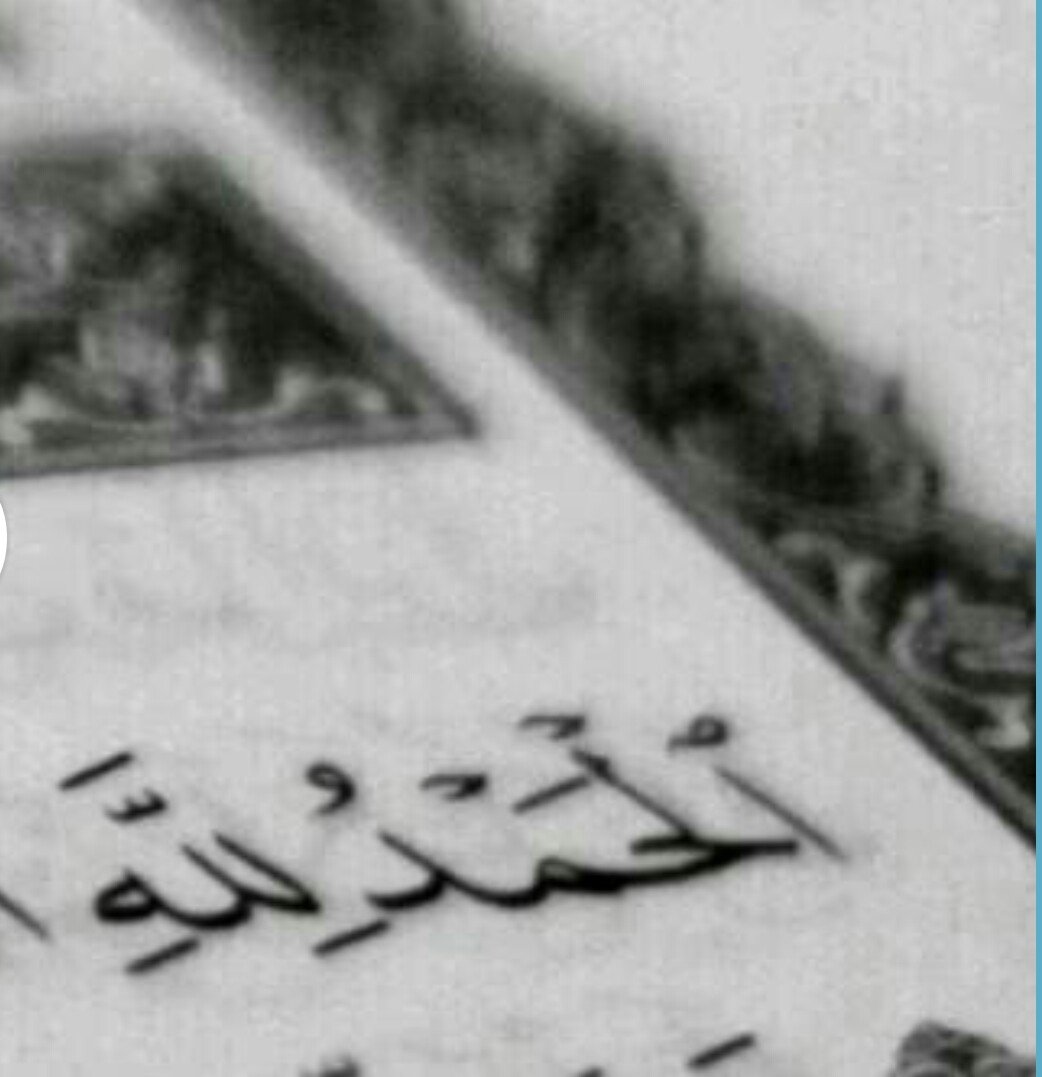 اُلْحَمْدُ لِلَّهِ